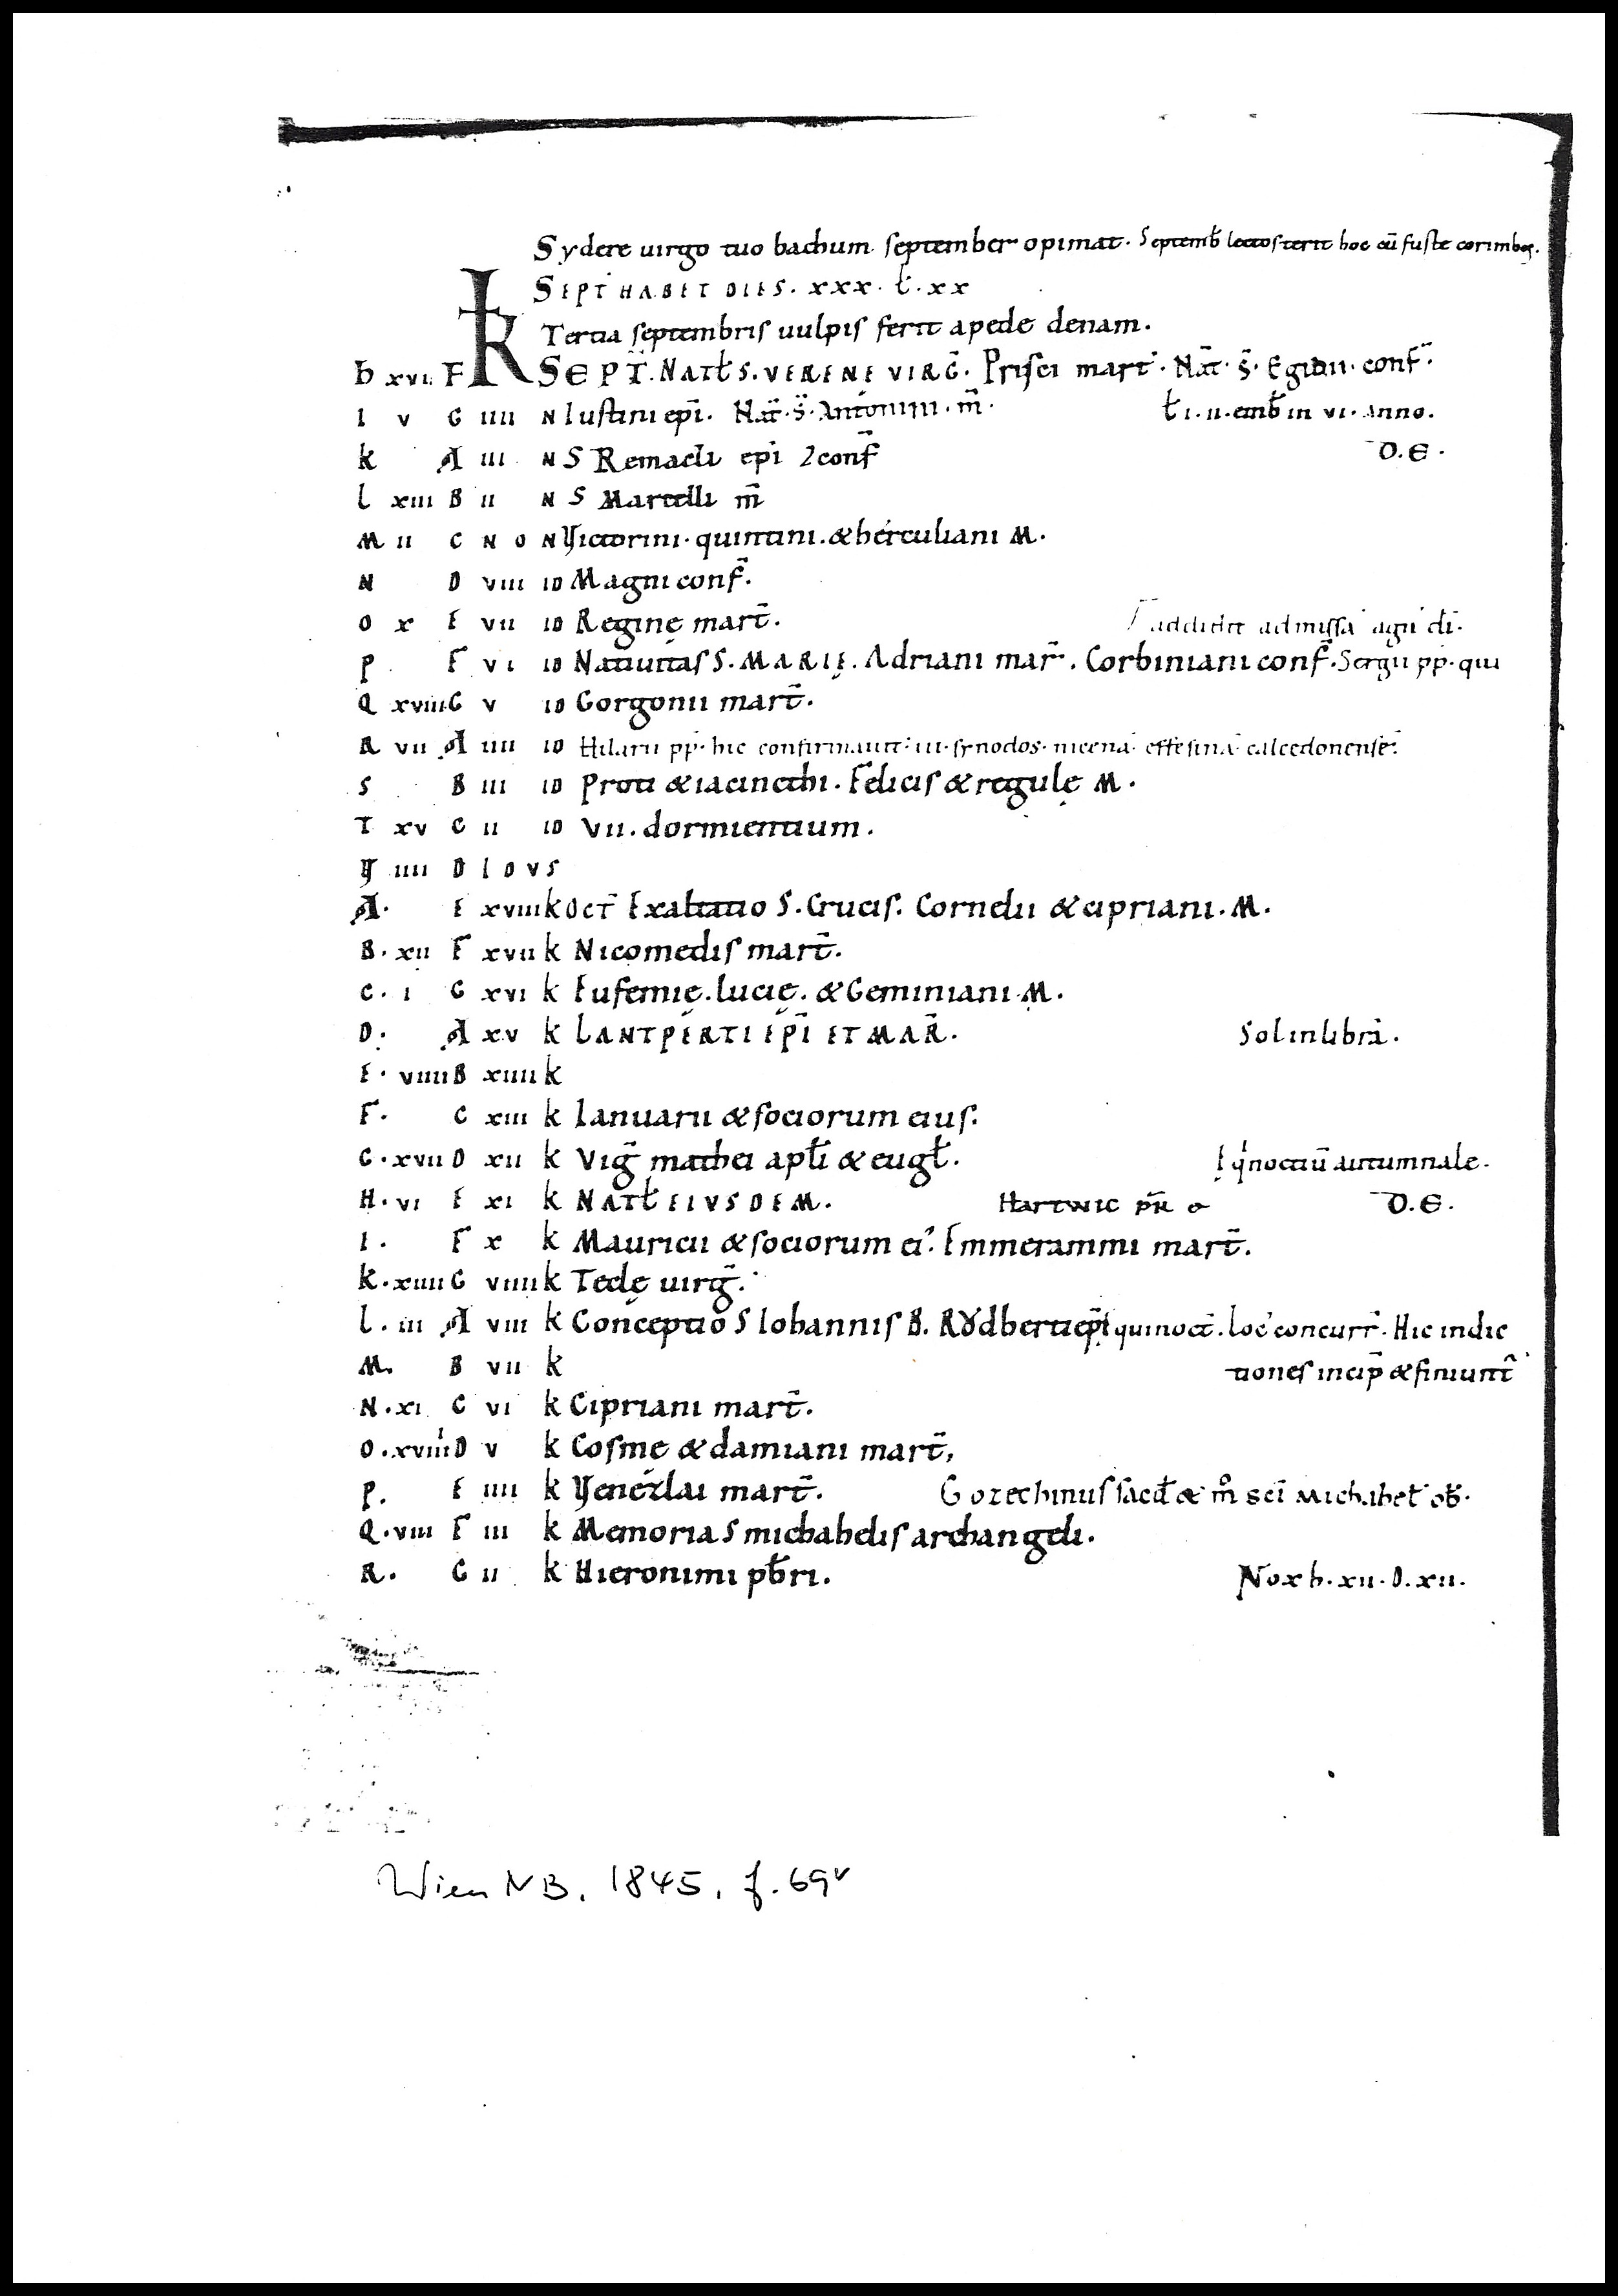 Sydere uirgo tuo bachum september opimat. Septemb̄ lectos terit hoc cū fuste corimbos.
SEPT HABET DIES. xxx. ł. xx
Tertia septembris uulpis ferit a pede denam.
h xvi. F K SEPT̄. NATł S. VERENE VIRḠ. Prisci mart̄. Nat̄. s̄. Egidii. conf̄.
I v G IIII N Iustini epī. Nat̄. s̄. Antonini. m̄. ł i. N. emb̄ in vi. anno.
K A III N S Remacli epi 7 conf̄ D. E.
L xiii B II N S Marcelli m̄
M II C N O N Victorini. quintini. & herculiani M.
N D VIII ID Magni conf̄.
O x E VII ID Regine mart̄. addidit ad missā agn̄ di.
P F VI ID Natiuitas S. MARIĘ. Adriani mar̄. Corbiniani conf̄. Sergii pp. qui
Q xviii G V ID Gorgonii mart̄.
R vii A IIII ID Hilarii pp. hic confirmauit. iii. synodos. nicenā. effesinā. calcedonensē.
S B III ID Proti & iacincthi. Felicis & regulę M.
T xv C II ID VII. dormientium.
V IIII D IDVS
A. E xviiii K OCT̄ Exaltatio S. Crucis. Cornelii & cipriani. M.
B. xii F xvii K Nicomedis mart̄.
C. i G xvi K Eufemię. lucię. & Geminiani M.
D. A xv K LANTPERTI EPĪ ET MAR̄. Sol in librā.
E. viiii B xiiii K
F. C xiii K Ianuarii & sociorum eius.
G. xvii D xii K Viḡ mathei apłi & eugł. Eqinoctiū autumnale.
H. vi E xi K NATł EIVSDEM. HARTWIC pr̄ o D. E.
I. F x K Mauricii & sociorum ei'. Emmerammi mart̄.
K. xiiii G viiii K Teclę uirḡ.
L. iii A viii K Conceptio S Iohannis B. Rŏdberti epī Equinoct̄. Loc' concurr̄. Hic indic
M. B vii K tiones incip̄ & finiunt̄
N. xi C vi K Cipriani mart̄.
O. xviiii D v K Cosme & damiani mart̄.
P. E iiii K Venezlai mart̄. Gozechinus sacd̄ & m̊ scī Michahel' ob̄.
Q. viii F iii K Memoria S michahelis archangeli.
R. G ii K Hieronimi pb̄ri. Nox h. xii. D. xii.
Wien NB. 1845, f. 69v